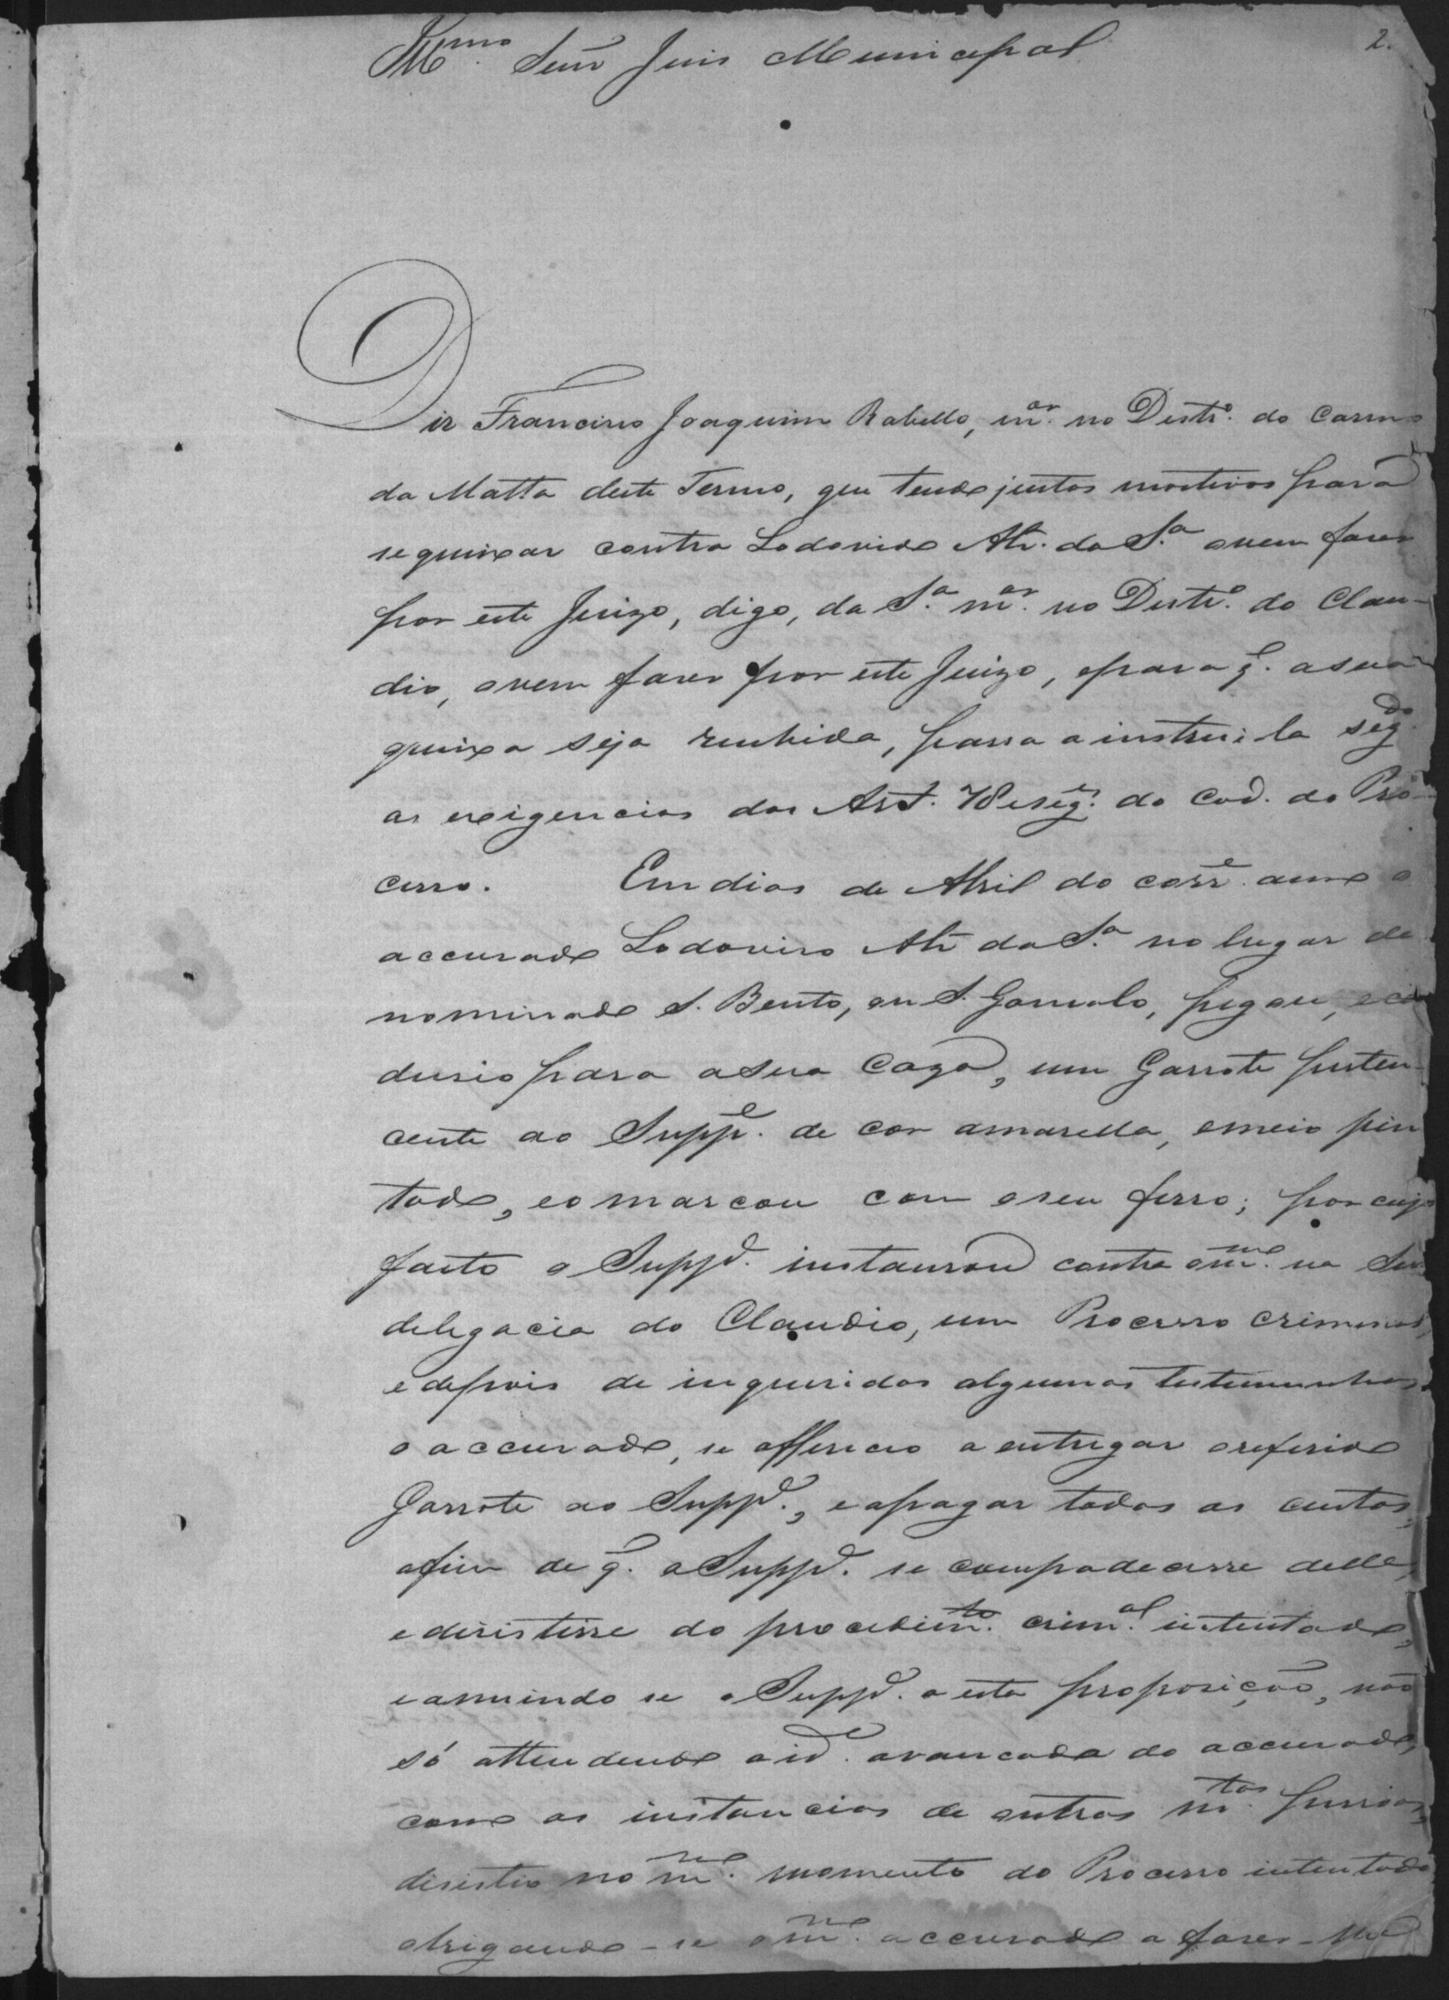 Illmo. Senr Juis Municipal
2.
Diz Francisco Joaquim Rabello, mor. no Distro. do Carmo
da Matta deste Termo, que tendo justos motivos para
se queixar contra Lodovico Alz. da Sa. o vem fazer
por este Juizo, digo, da Sa. mor. no Distro. do Clau-
dio, o vem fazer por este Juizo, e para q. a sua
queixa seja recebida, passa a instrui-la segdo.
as exigencias dos Art. 78 e sege. do Cod. do Pro-
cesso. Em dias de Abril do corre. anno o
accusado Lodovico Alz da Sa. no lugar de
nominado S. Bento, ou S. Gonsalo, pegou, e con
dusio para a sua Caza, um Garrote perten-
cente ao Suppe. de cor amarella, e meio pin
tado, e o marcou com o seu ferro; por cujo
facto o Suppe. instaurou contra o mmo. na Sub
delegacia do Claudio, um Processo criminal,
e depois de inqueridas algumas testemunhas
o accusado, se offereceo a entregar o referido
Garrote ao Suppe., e a pagar todas as custas,
afim de q. o Suppe. se compadecesse delle,
e disistisse do procedimto. crimal. intentado,
e annuindo se o Suppe. a esta proposição, não
só attendendo a ide. avançada do accusado,
como as instancias de outras mtas. pessoas,
disistio no mmo. momento do Processo intentado
obrigando-se o mmo. accusado a fazer-lhe